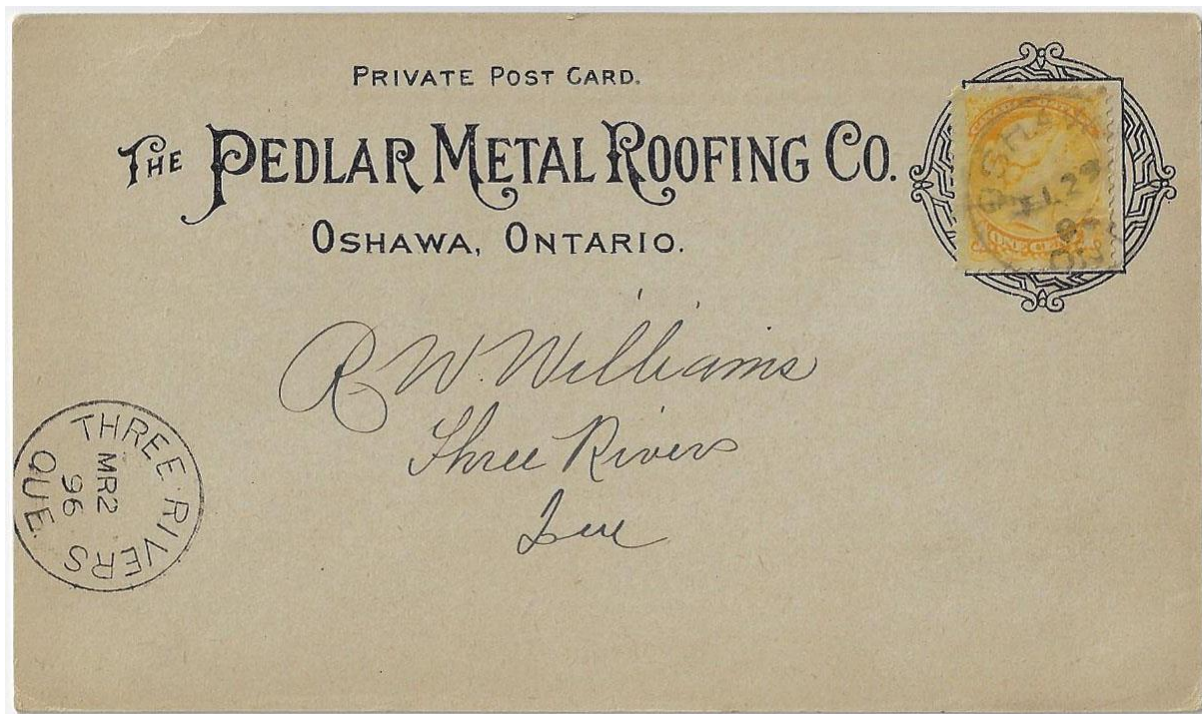 PRIVATE POST CARD.
THE PEDLAR METAL ROOFING CO.
OSHAWA, ONTARIO.
ONE CENT
29
R W. Williams
Three Rivers
Que
THREE RIVERS
MR 2
96
QUE.